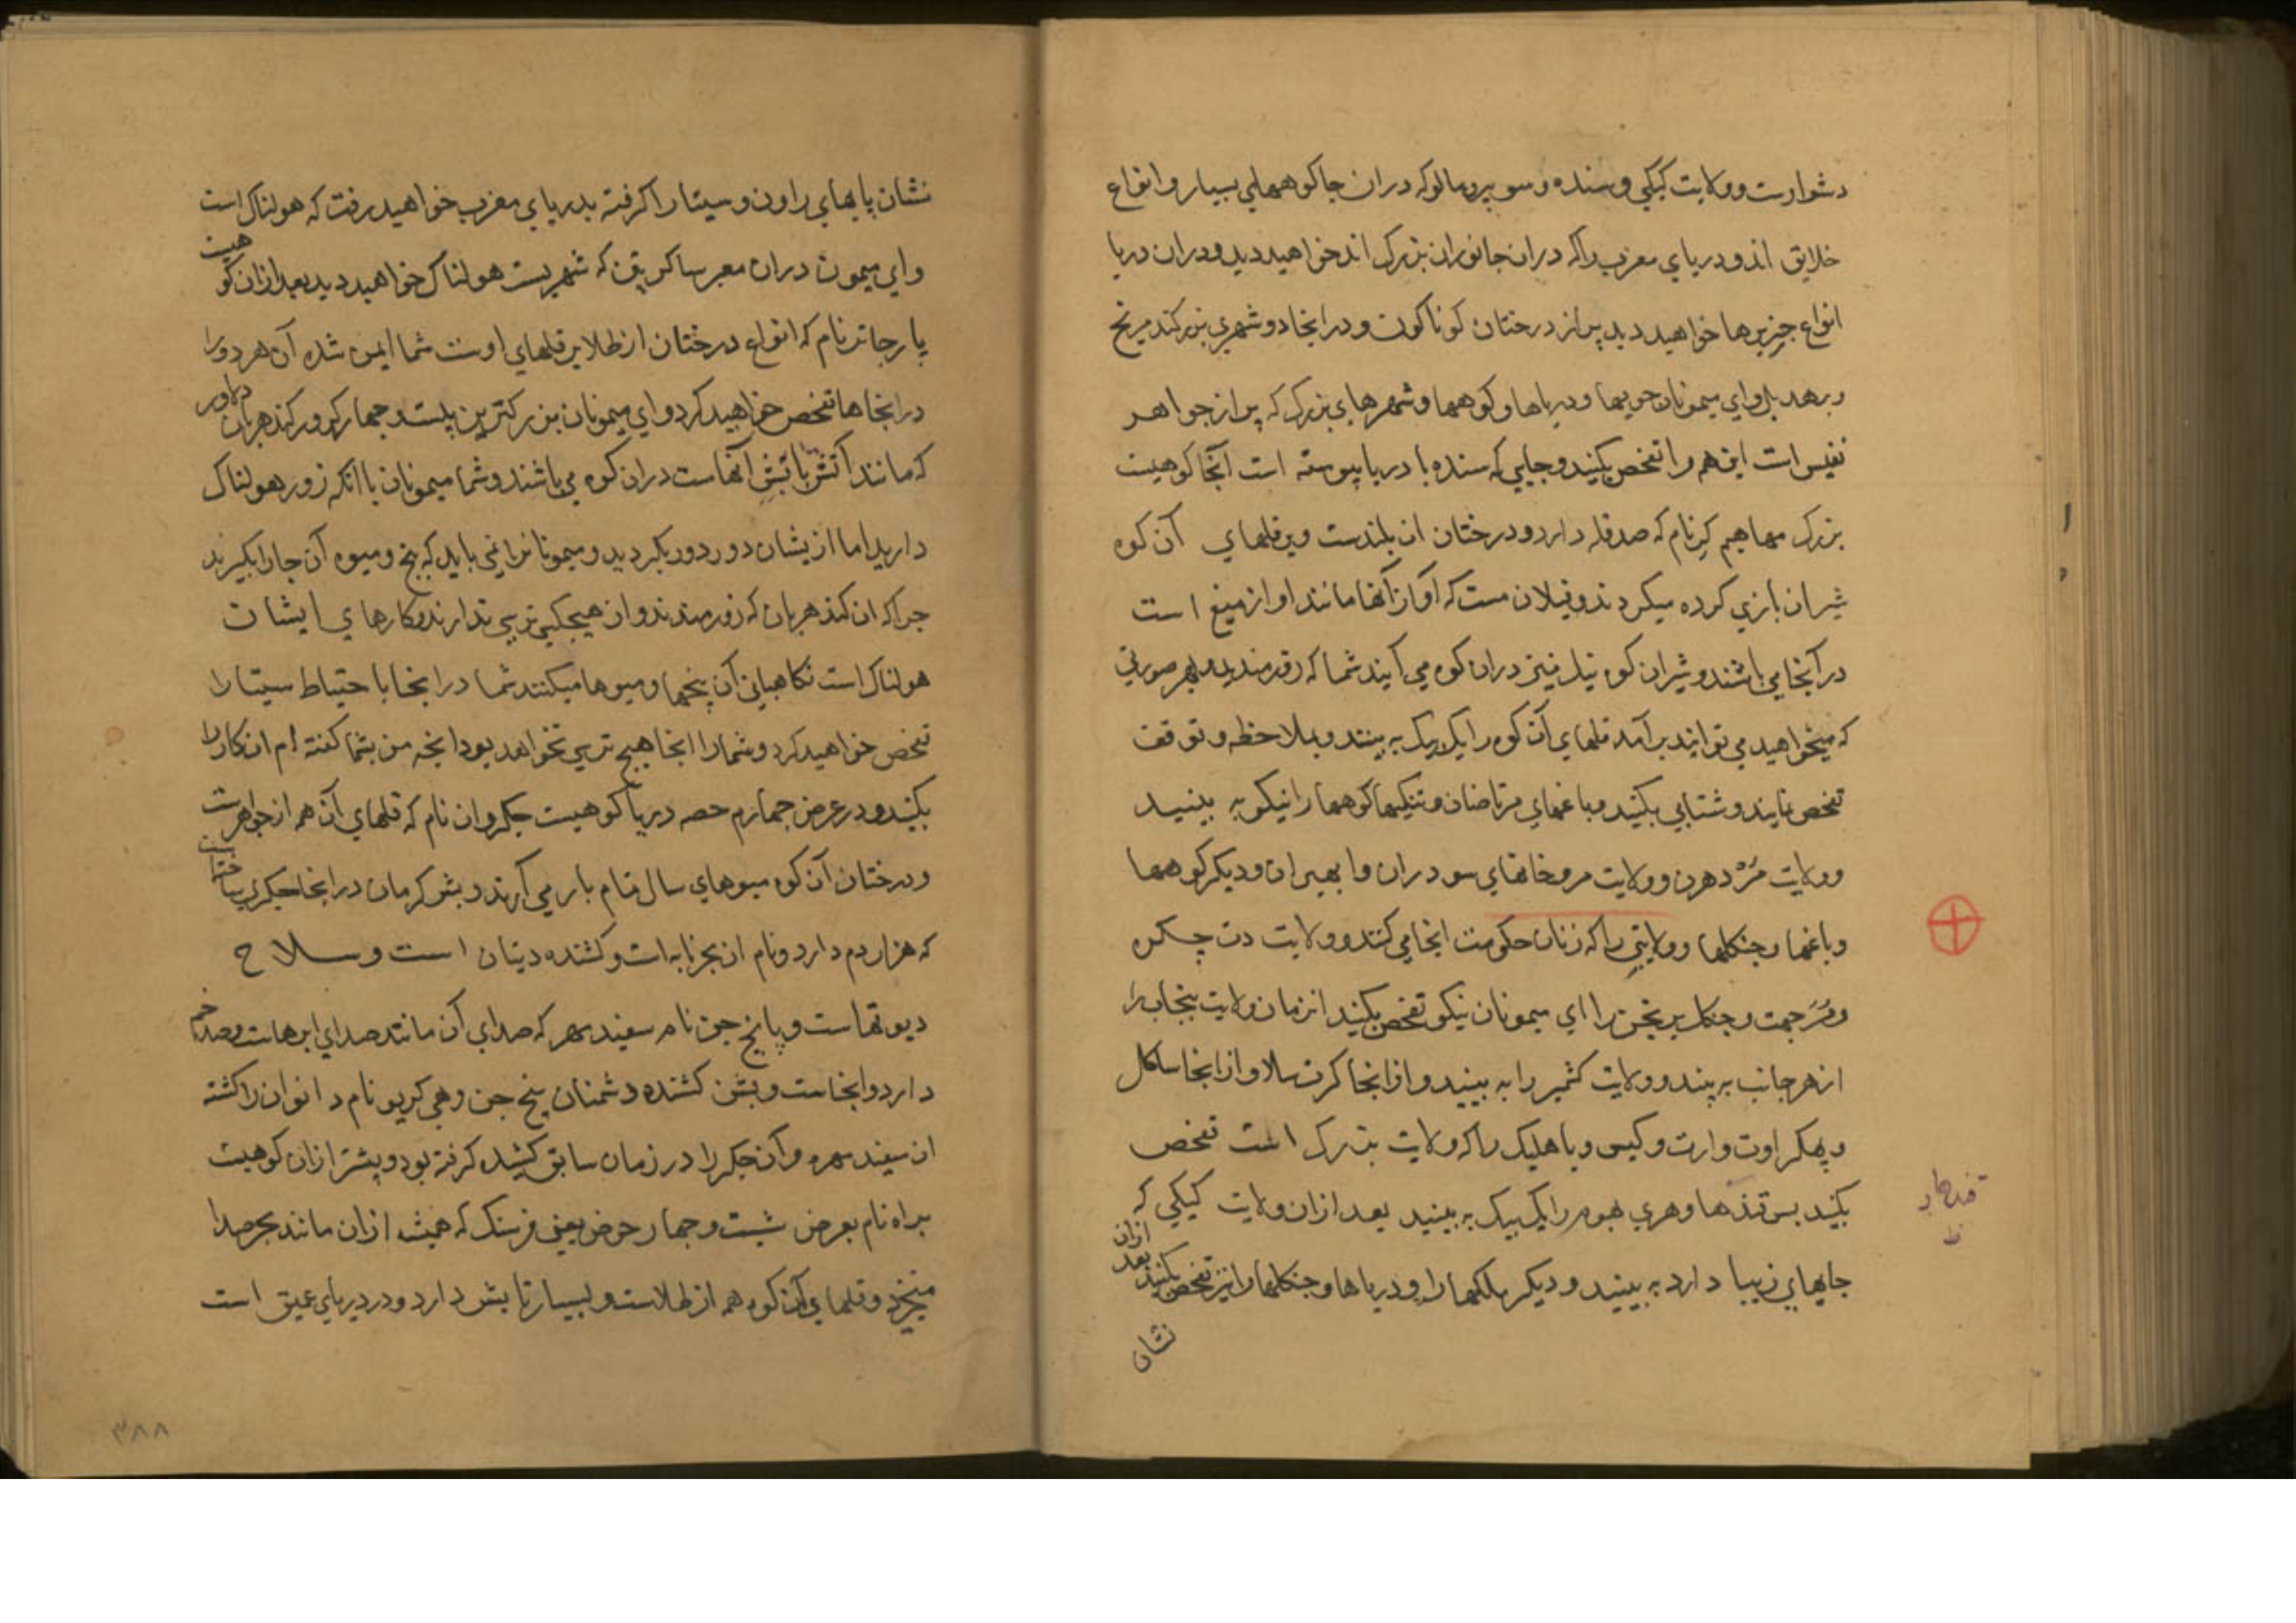 دشوارست و ولایت کیکی و سنده و سوبر و مالو که دران جا کوههای بسیار و انواع
خلایق اند و دریای مغرب را که دران جانوران بزرک اند خواهید دید و دران دریا
انواع جزیرها خواهید دید پر از درختان کوناکون و درانجا دو شهری بزرکند مریچ
ای میمونان جویها و دریاها و کوهها و شهرهای بزرک که پر از جواهر
نفیس است این همه را تفحص بکنید و جایی که سنده با دریا پیوسته است آنجا کوهیست
بزرک نام که صد قله دارد و درختان ان بلندست و بر قلهای آن کوه
شیران بازی کرده میکردند و فیلان مست که آواز آنها مانند اواز میغ است
درآنجا می باشند و شیران کوه نیز دران کوه می آیند شما که زورمندید بهر صورتی
که میخواهید می توانید برآمد قلهای آن کوه را یک بیک به بینند و بملاحظه و توقف
تفحص نمایند و شتابی بکنید و باغهای مرتاضان و کوهها را نیکو به بینید
و ولایت و ولایت مرو خانهای سودران و ابهیران و دیکر کوهها
و باغها و جنکلها و ولایتی را که زنان حکومت انجا می کنند و ولایت
و جنکل را ای میمونان نیکو تفحص بکنید ازمان ولایت پنجاب را
از هر جانب به بینند و ولایت کشمیر را به بینید و ازانجا ساکل
و باهلیک را که ولایت بزرک است تفحص
بکنید یک بیک به بینید بعد ازان ولایت کیکی که
قندهار
ظ
جایهای زیبا دارد به بینید و دیکر ملکها را و دریاها و جنکلها را نیز تفحص بکنید بعد ازان
نشان
نشان پایهای راون و سیتا را کرفته بدریای مغرب خواهید رفت که هولناک است
وای میمون دران معبر که شهریست هولناک خواهید دید بعد ازان کوهیست
پارجاتر نام که انواع درختان از طلا بر قلهای اوست شما ایمن شده آن هر دو را
درانجاها تفحص خواهید کرد و ای میمونان بزرکترین بیست و چهار کرور کندهربان دلاور
که مانند آتش آنهاست دران کوه می باشند و شما میمونان با آنکه زور هولناک
دارید اما ازیشان دور دور بکردید و میمونان را نمی باید که بیخ و میوه آن جا را بکیرند
چرا که ان کندهربان که زورمندند و از هیچکس ترسی ندارند و کارهای ایشان
هولناک است نکاهبانی آن بیخها و میوها میکنند شما درانجا با حتیاط سیتا را
تفحص خواهید کرد و شما را انجا هیچ ترسی نخواهد بود انچه من بشما کفته ام ان کار را
بکنید و در عرض چهارم حصه دریا کوهیست چکروان نام که قلهای آن همه از جواهرست
و درختان آن کوه میوهای سال تمام بار می آرند و بشن کرمان درانجا چکری ساخته است
که هزار دم دارد و نام ان بجرنابه است و کشنده دیتان است و سلاح
دیوتهاست و پانچ جن نام سفید مهره که صدای آن مانند صدای ابرهاست و صد خم
دارد و انجاست و بشن کشنده دشمنان پنچ جن و هی کریو نام دانوان را کشته
ان سفید مهره و آن چکر را در زمان سابق کشیده کرفته بود و پیشتر ازان کوهیست
براه نام بعرض شست و چهار جوجن یعنی فرسنک که همیشه ازان مانند بحر صدا
میخیزد و قلهای آن کوه همه از طلاست و بسیار تابش دارد و در دریای عمیق است
۳۸۸